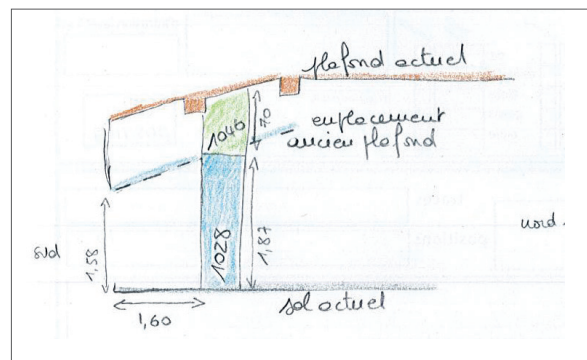 plafond actuel
70
1040
emplacement
ancien plafond
1,58
1028
1,87
sud
nord.
1,60
sol actuel